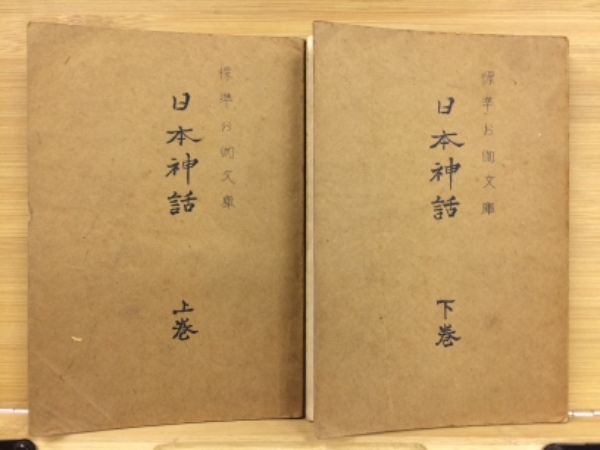 標準お伽文庫
日本神話
上巻
標準お伽文庫
日本神話
下巻